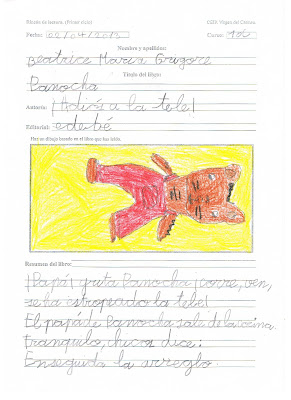 Fichas de lectura. (Primer ciclo) CEIP. Virgen del Carmen.
Fecha: 22/04/2013 Curso: 1º
Nombre y apellidos:
Beatrice Maria Grigore
Título del libro:
Panocha
Autor/a: ¡Adiós a la tele!
Editorial: edebé
Haz un dibujo basado en el libro que has leído.
Resumen del libro:
¡Papá! grita Panocha ¡corre, ven,
se ha estropeado la tele!
El papá de Panocha sale de la cocina.
tranquilo, chico dice:
Enseguida la arreglo.